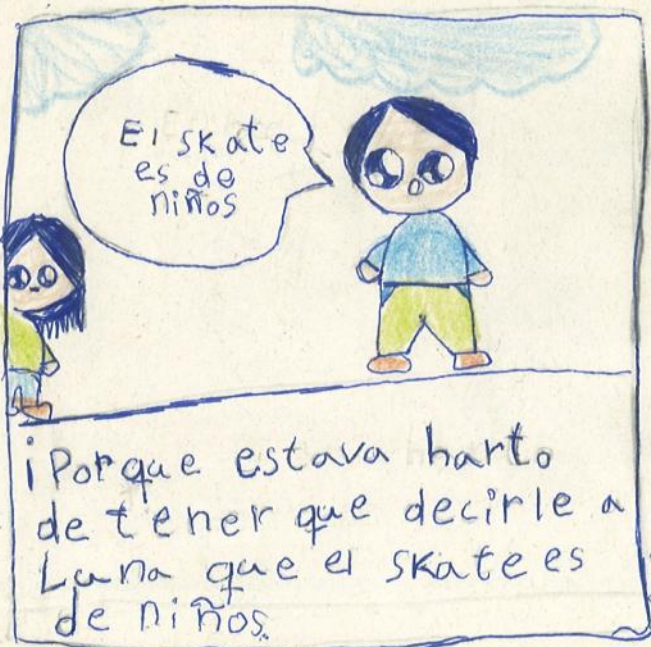 El skate
es de
niños
¡Porque estava harto
de tener que decirle a
Luna que el skate es
de niños.